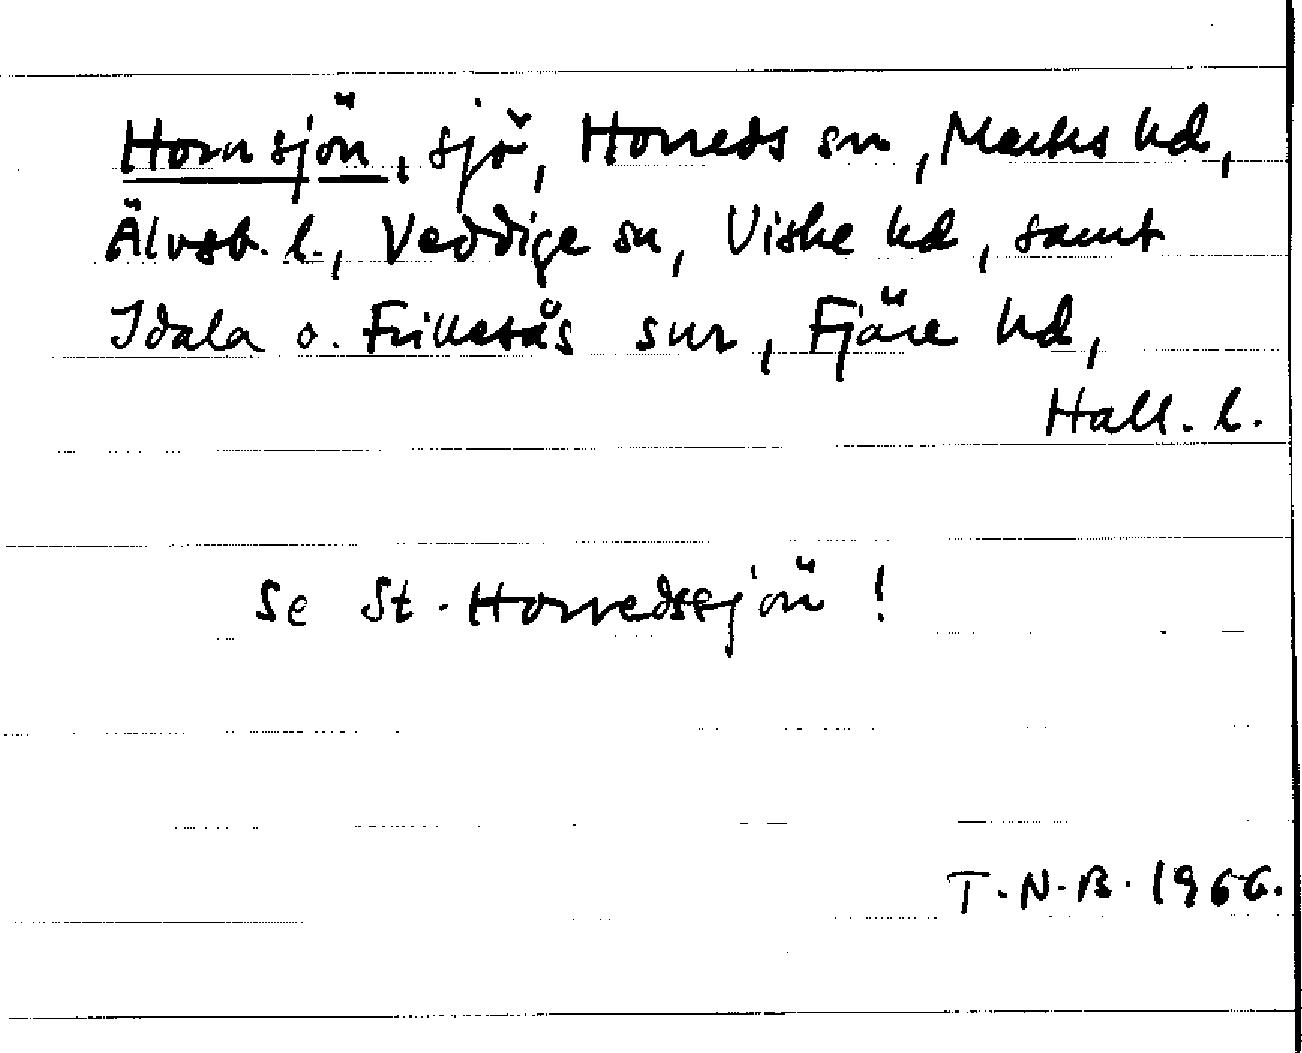 Hornsjön, sjö, Horreds sn, Marks hd,
Älvsb. l., Veddige sn, Viske hd, samt
Idala o. Frillesås snr, Fjäre hd,
Hall. l.
Se St. Horredssjön !
T.N.B. 1966.